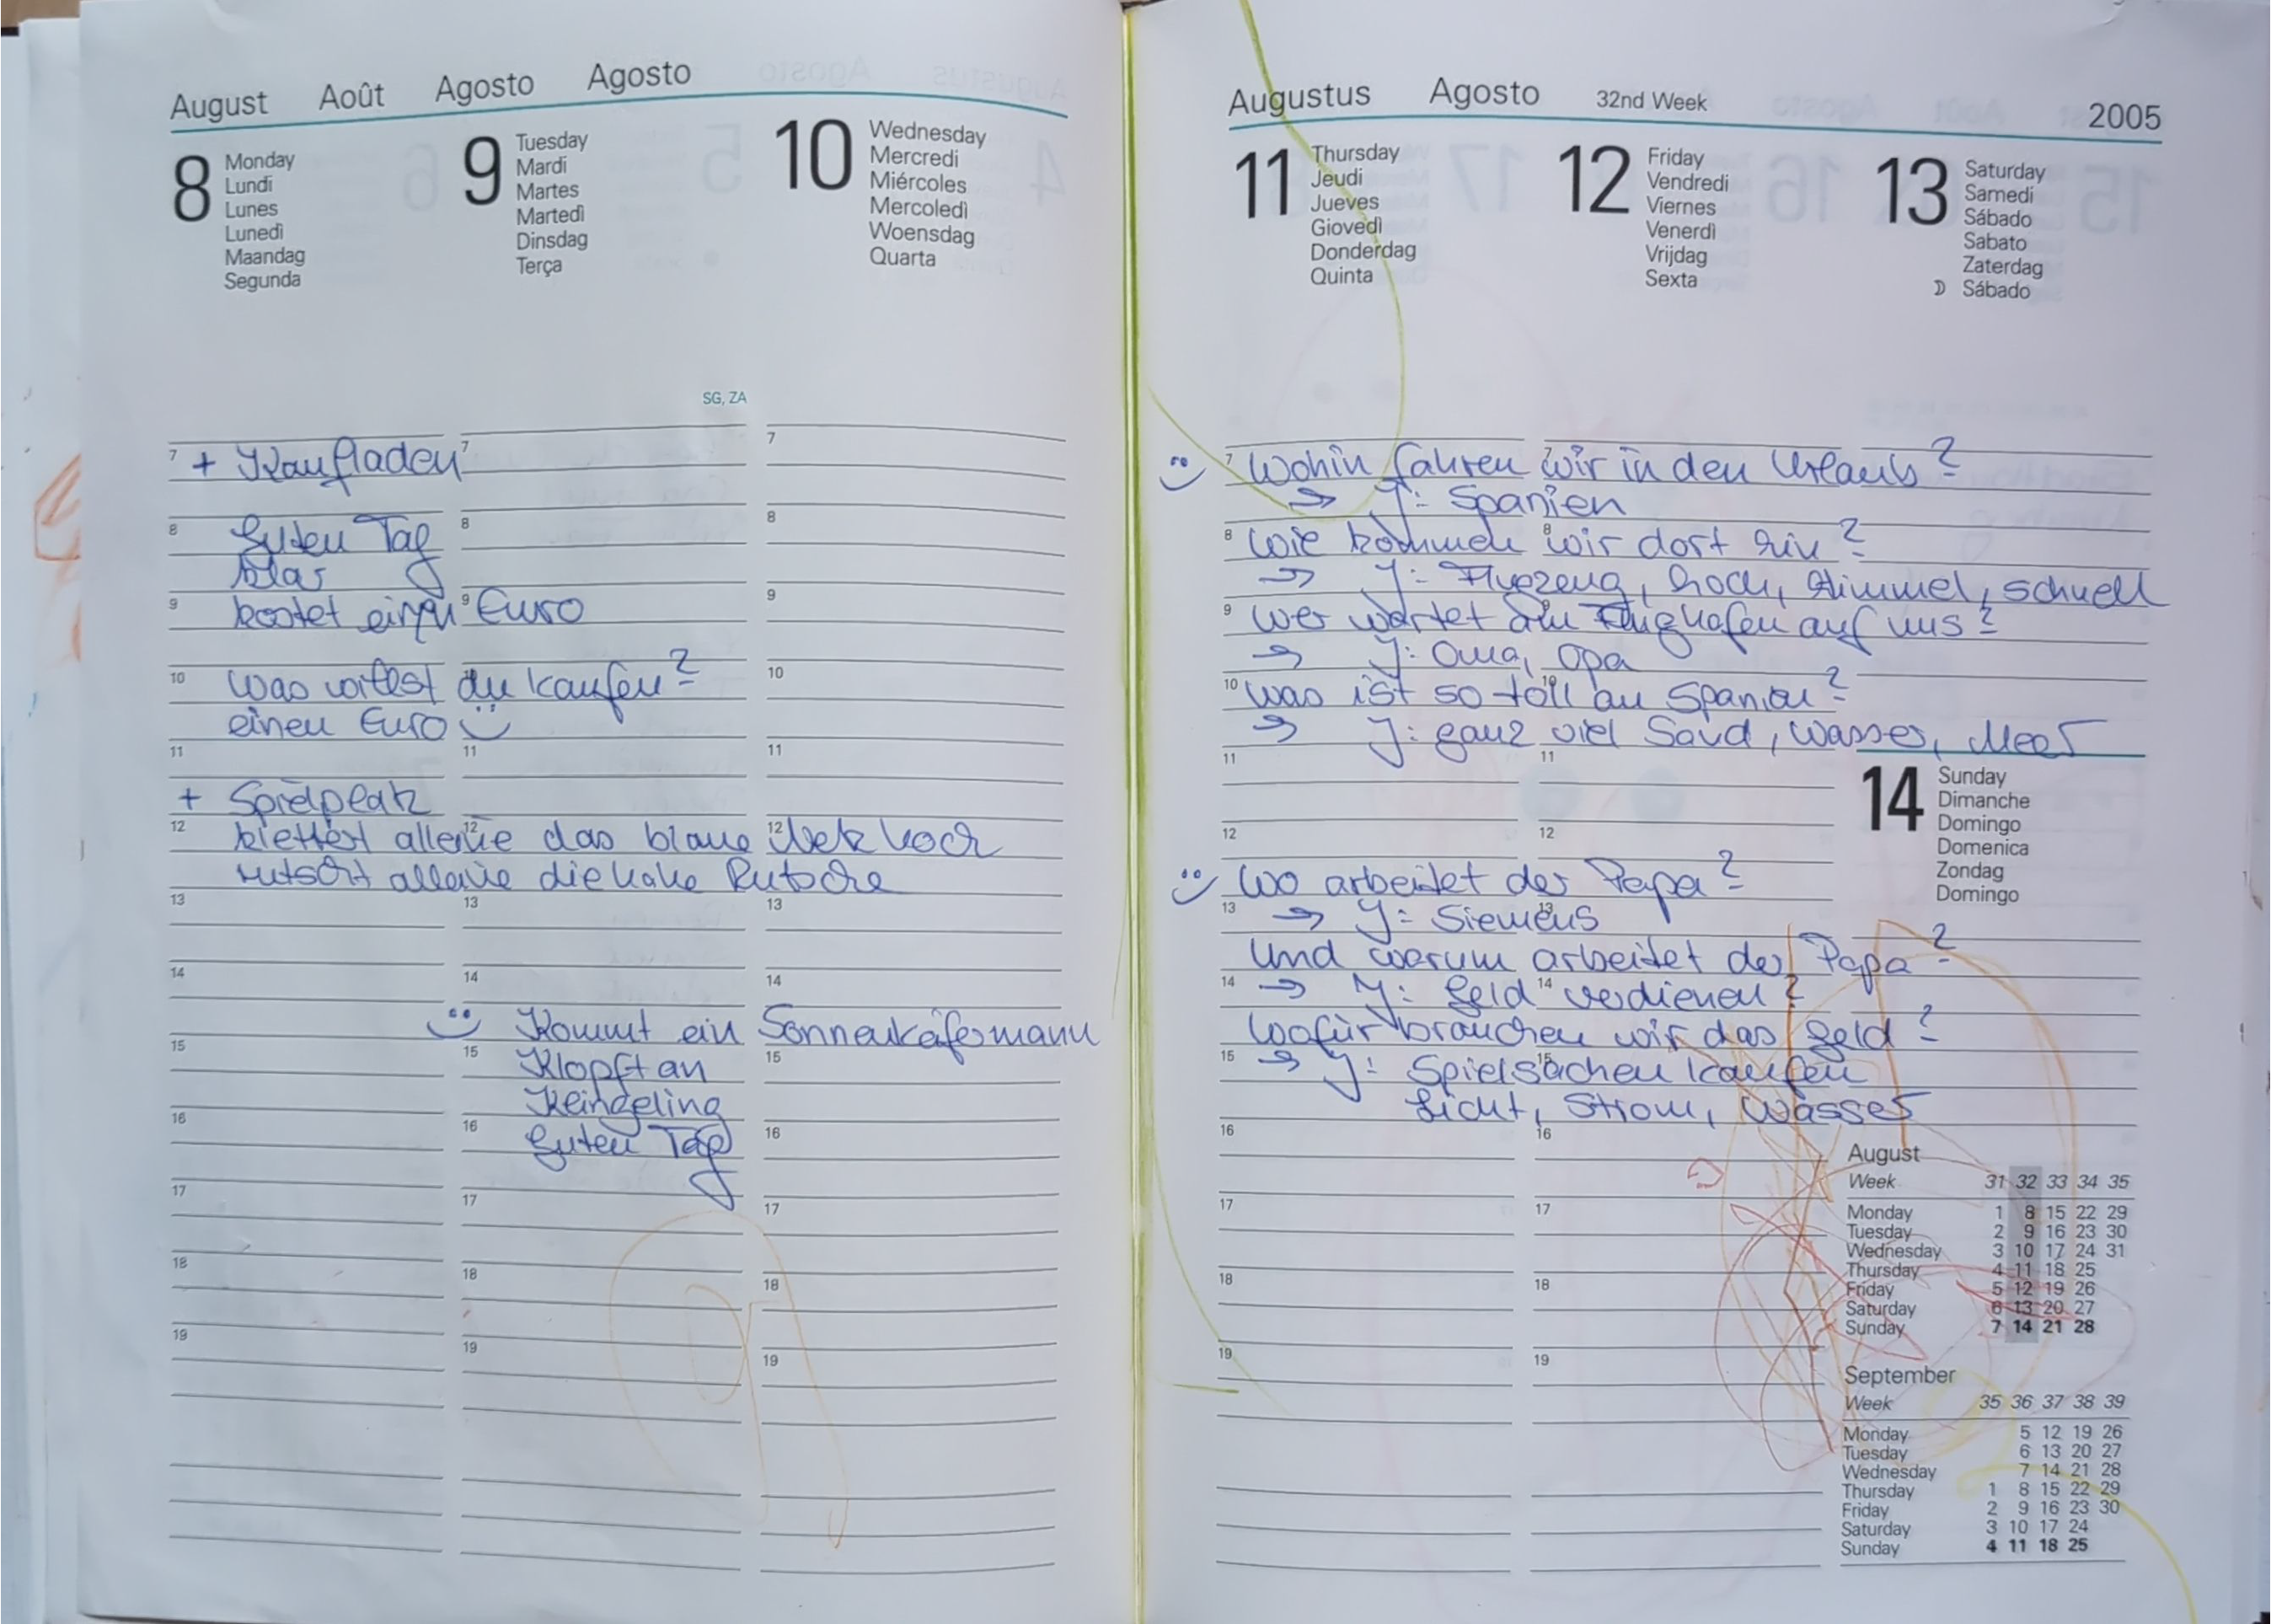 August Août Agosto Agosto
8 Monday
Lundi
Lunes
Lunedì
Maandag
Segunda
9 Tuesday
Mardi
Martes
Martedì
Dinsdag
Terça
10 Wednesday
Mercredi
Miércoles
Mercoledì
Woensdag
Quarta
SG, ZA
7 + Kaufladen 7 7
8 Guten Tag 8 8
9 kostet einen 9 Euro 9
10 Was willst du kaufen? 10
einen Euro
11 11 11
+ Spielplatz
12 klettert alleine 12 das blaue 12 Netz hoch
rutscht alleine die hohe Rutsche
13 13 13
14 14 14
Kommt ein Sonnenkäfermann
15 15 Klopft an 15
Klingeling
16 16 Guten Tag 16
17 17 17
18 18 18
19 19 19
Augustus Agosto 32nd Week 2005
11 Thursday
Jeudi
Jueves
Giovedì
Donderdag
Quinta
12 Friday
Vendredi
Viernes
Venerdì
Vrijdag
Sexta
13 Saturday
Samedi
Sábado
Sabato
Zaterdag
Sábado
7 Wohin fahren 7 wir in den Urlaub?
→ J: Spanien
8 Wie kommen 8 wir dort hin?
→ J: Flugzeug, hoch, Himmel, schnell
9 Wer wartet am 9 Flughafen auf uns?
→ J: Oma, Opa
10 Was ist so toll 10 an Spanien?
→ J: ganz viel Sand, Wasser, Meer
11 11
14 Sunday
Dimanche
Domingo
Domenica
Zondag
Domingo
12 12
Wo arbeitet der Papa?
13 → J: Siemens 13
Und warum arbeitet der Papa?
14 → J: Geld 14 verdienen?
Wofür brauchen wir das Geld?
15 → J: Spielsachen 15 kaufen
Licht, Strom, Wasser
16 16
17 17
18 18
19 19
August
Week 31 32 33 34 35
Monday 1 8 15 22 29
Tuesday 2 9 16 23 30
Wednesday 3 10 17 24 31
Thursday 4 11 18 25
Friday 5 12 19 26
Saturday 6 13 20 27
Sunday 7 14 21 28
September
Week 35 36 37 38 39
Monday 5 12 19 26
Tuesday 6 13 20 27
Wednesday 7 14 21 28
Thursday 1 8 15 22 29
Friday 2 9 16 23 30
Saturday 3 10 17 24
Sunday 4 11 18 25